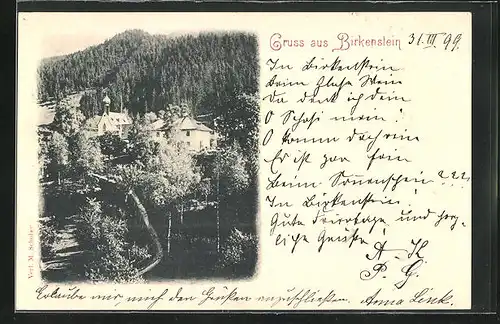 Gruss aus Birkenstein 31. III. 99.
In Birkenstein
beim Glase Wein
Da denk ich dein
O Schatzi mein!
O komm doch rein
Es ist gar fein
Beim Sonnenschein
In Birkenstein!
Gute Feiertage und herz-
liche Grüße!
A. H
P. G.
Verl. M. Schober
Erlaube mir, mich den Grüßen anzuschließen. Anna Link.